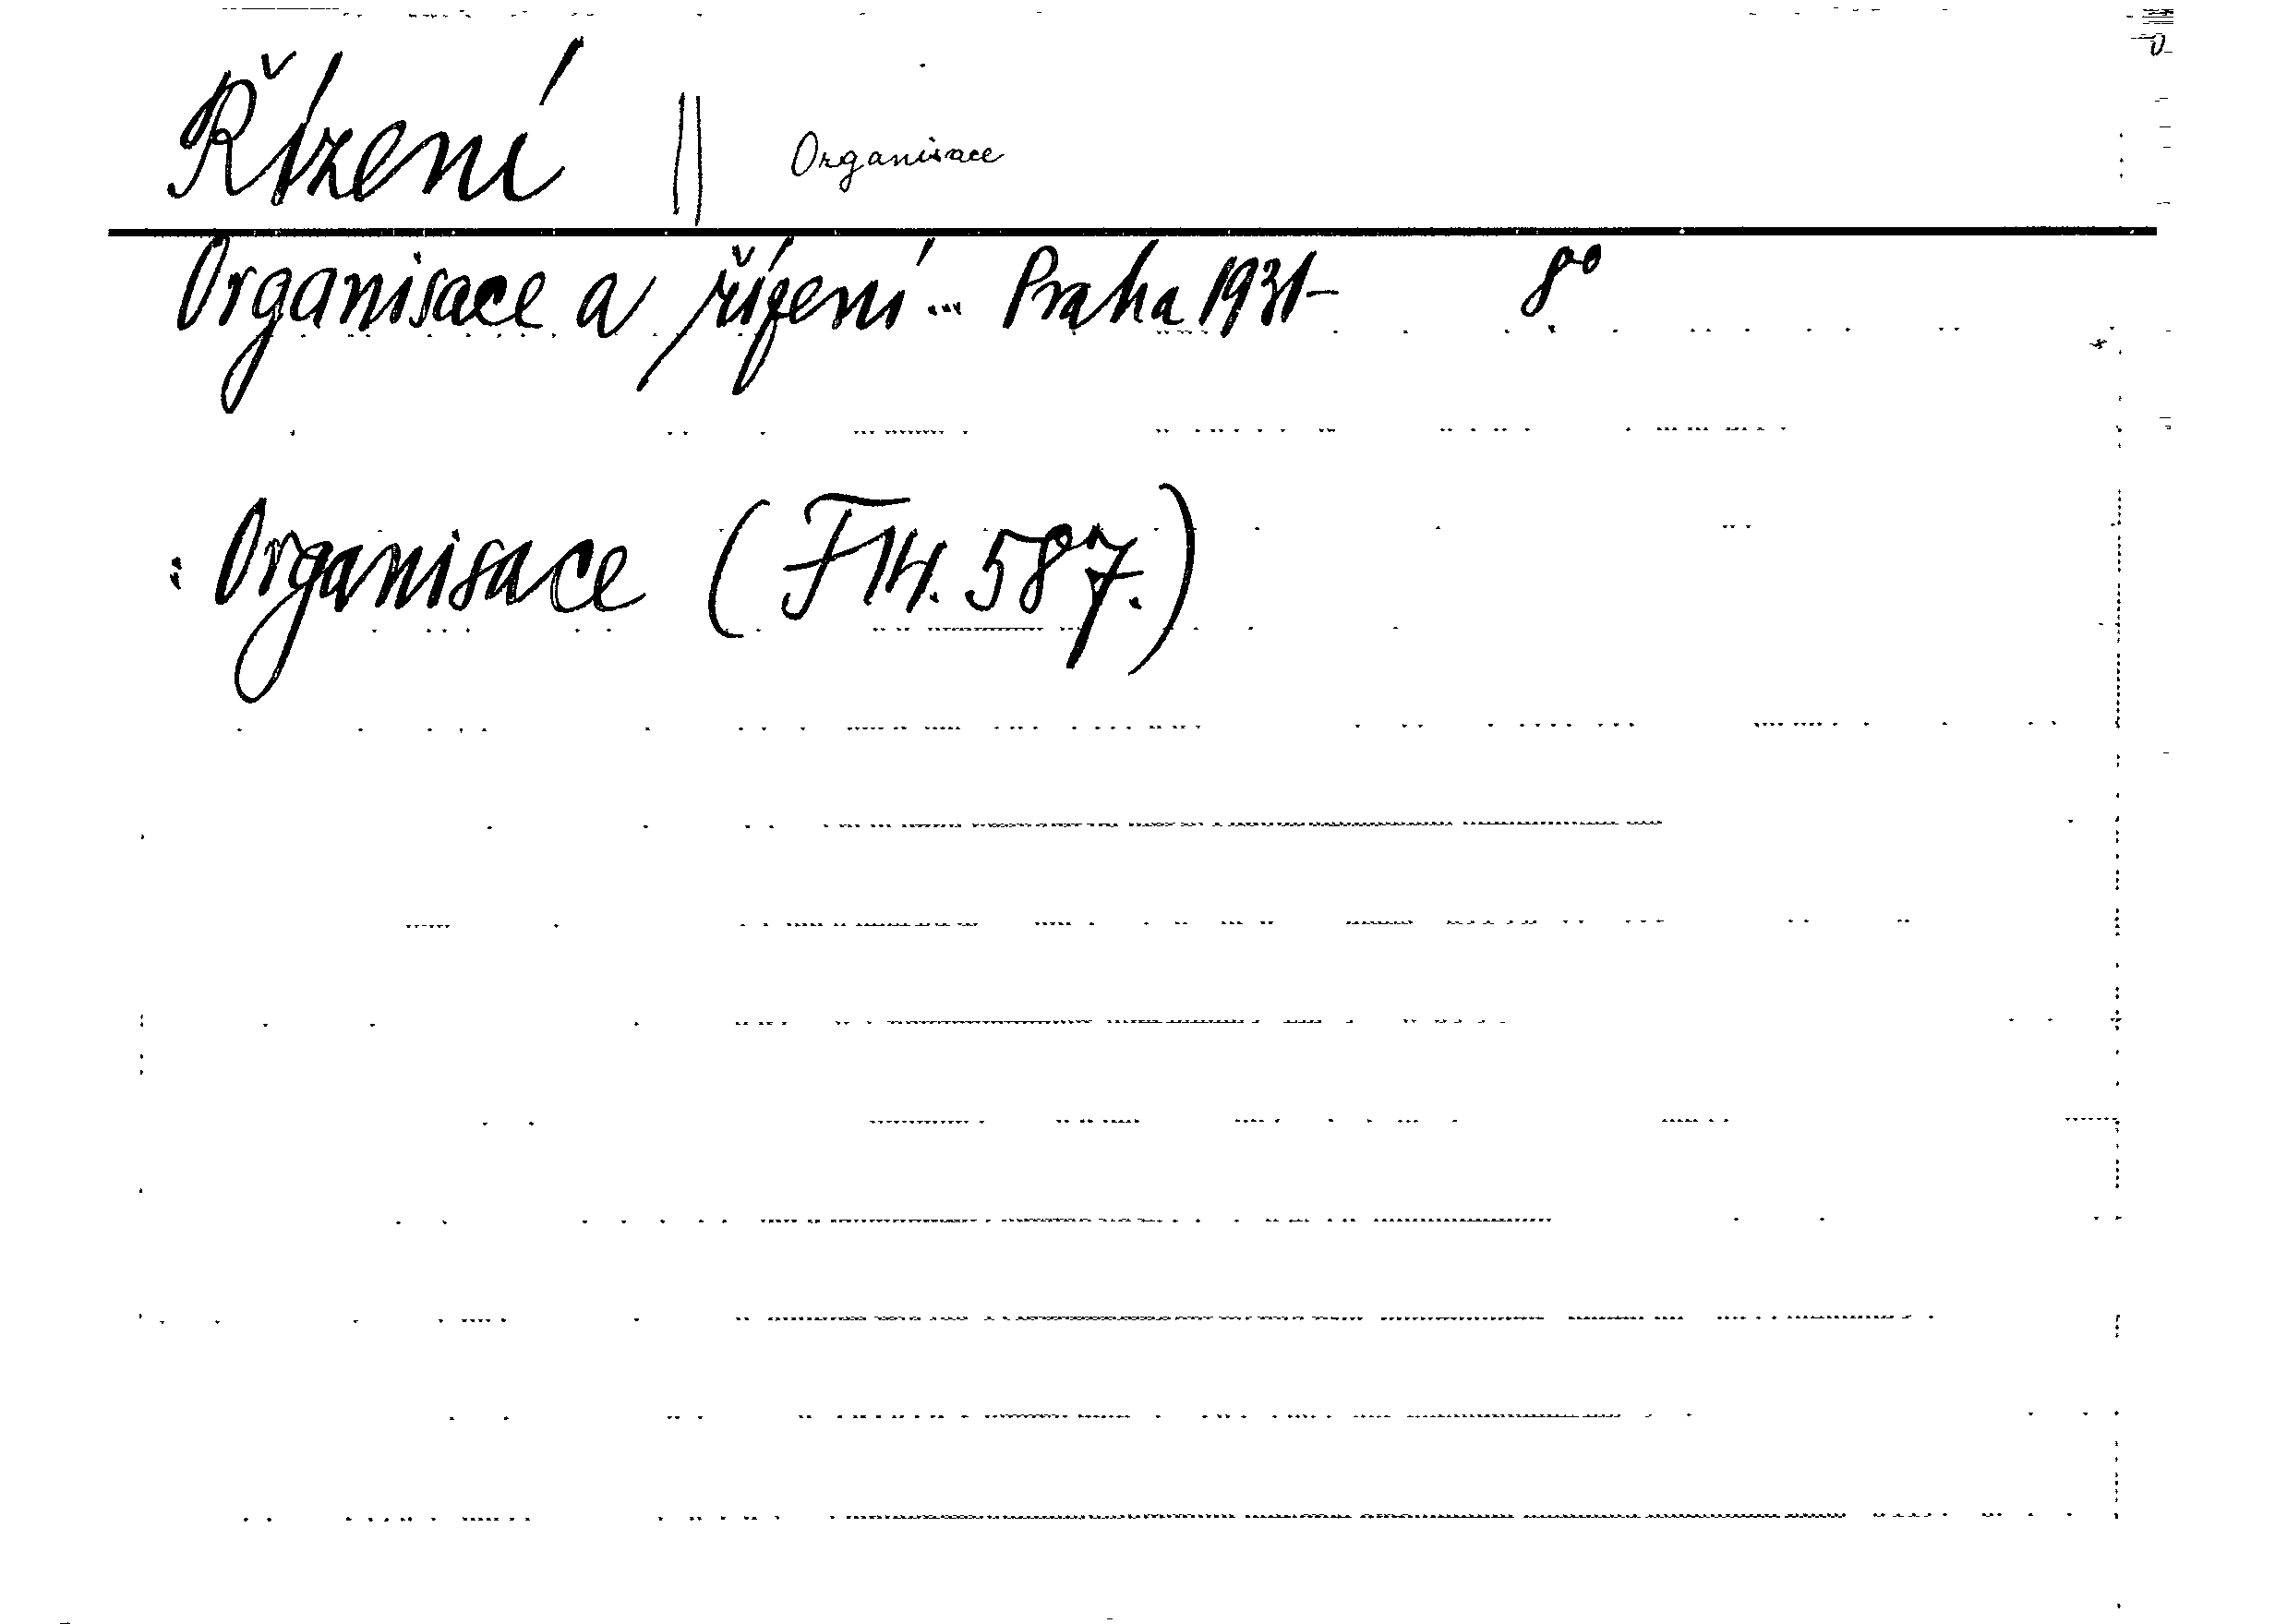 Řízení || Organisace
Organisace a řízení... Praha 1931- 8°
: Organisace (F 14.587.)